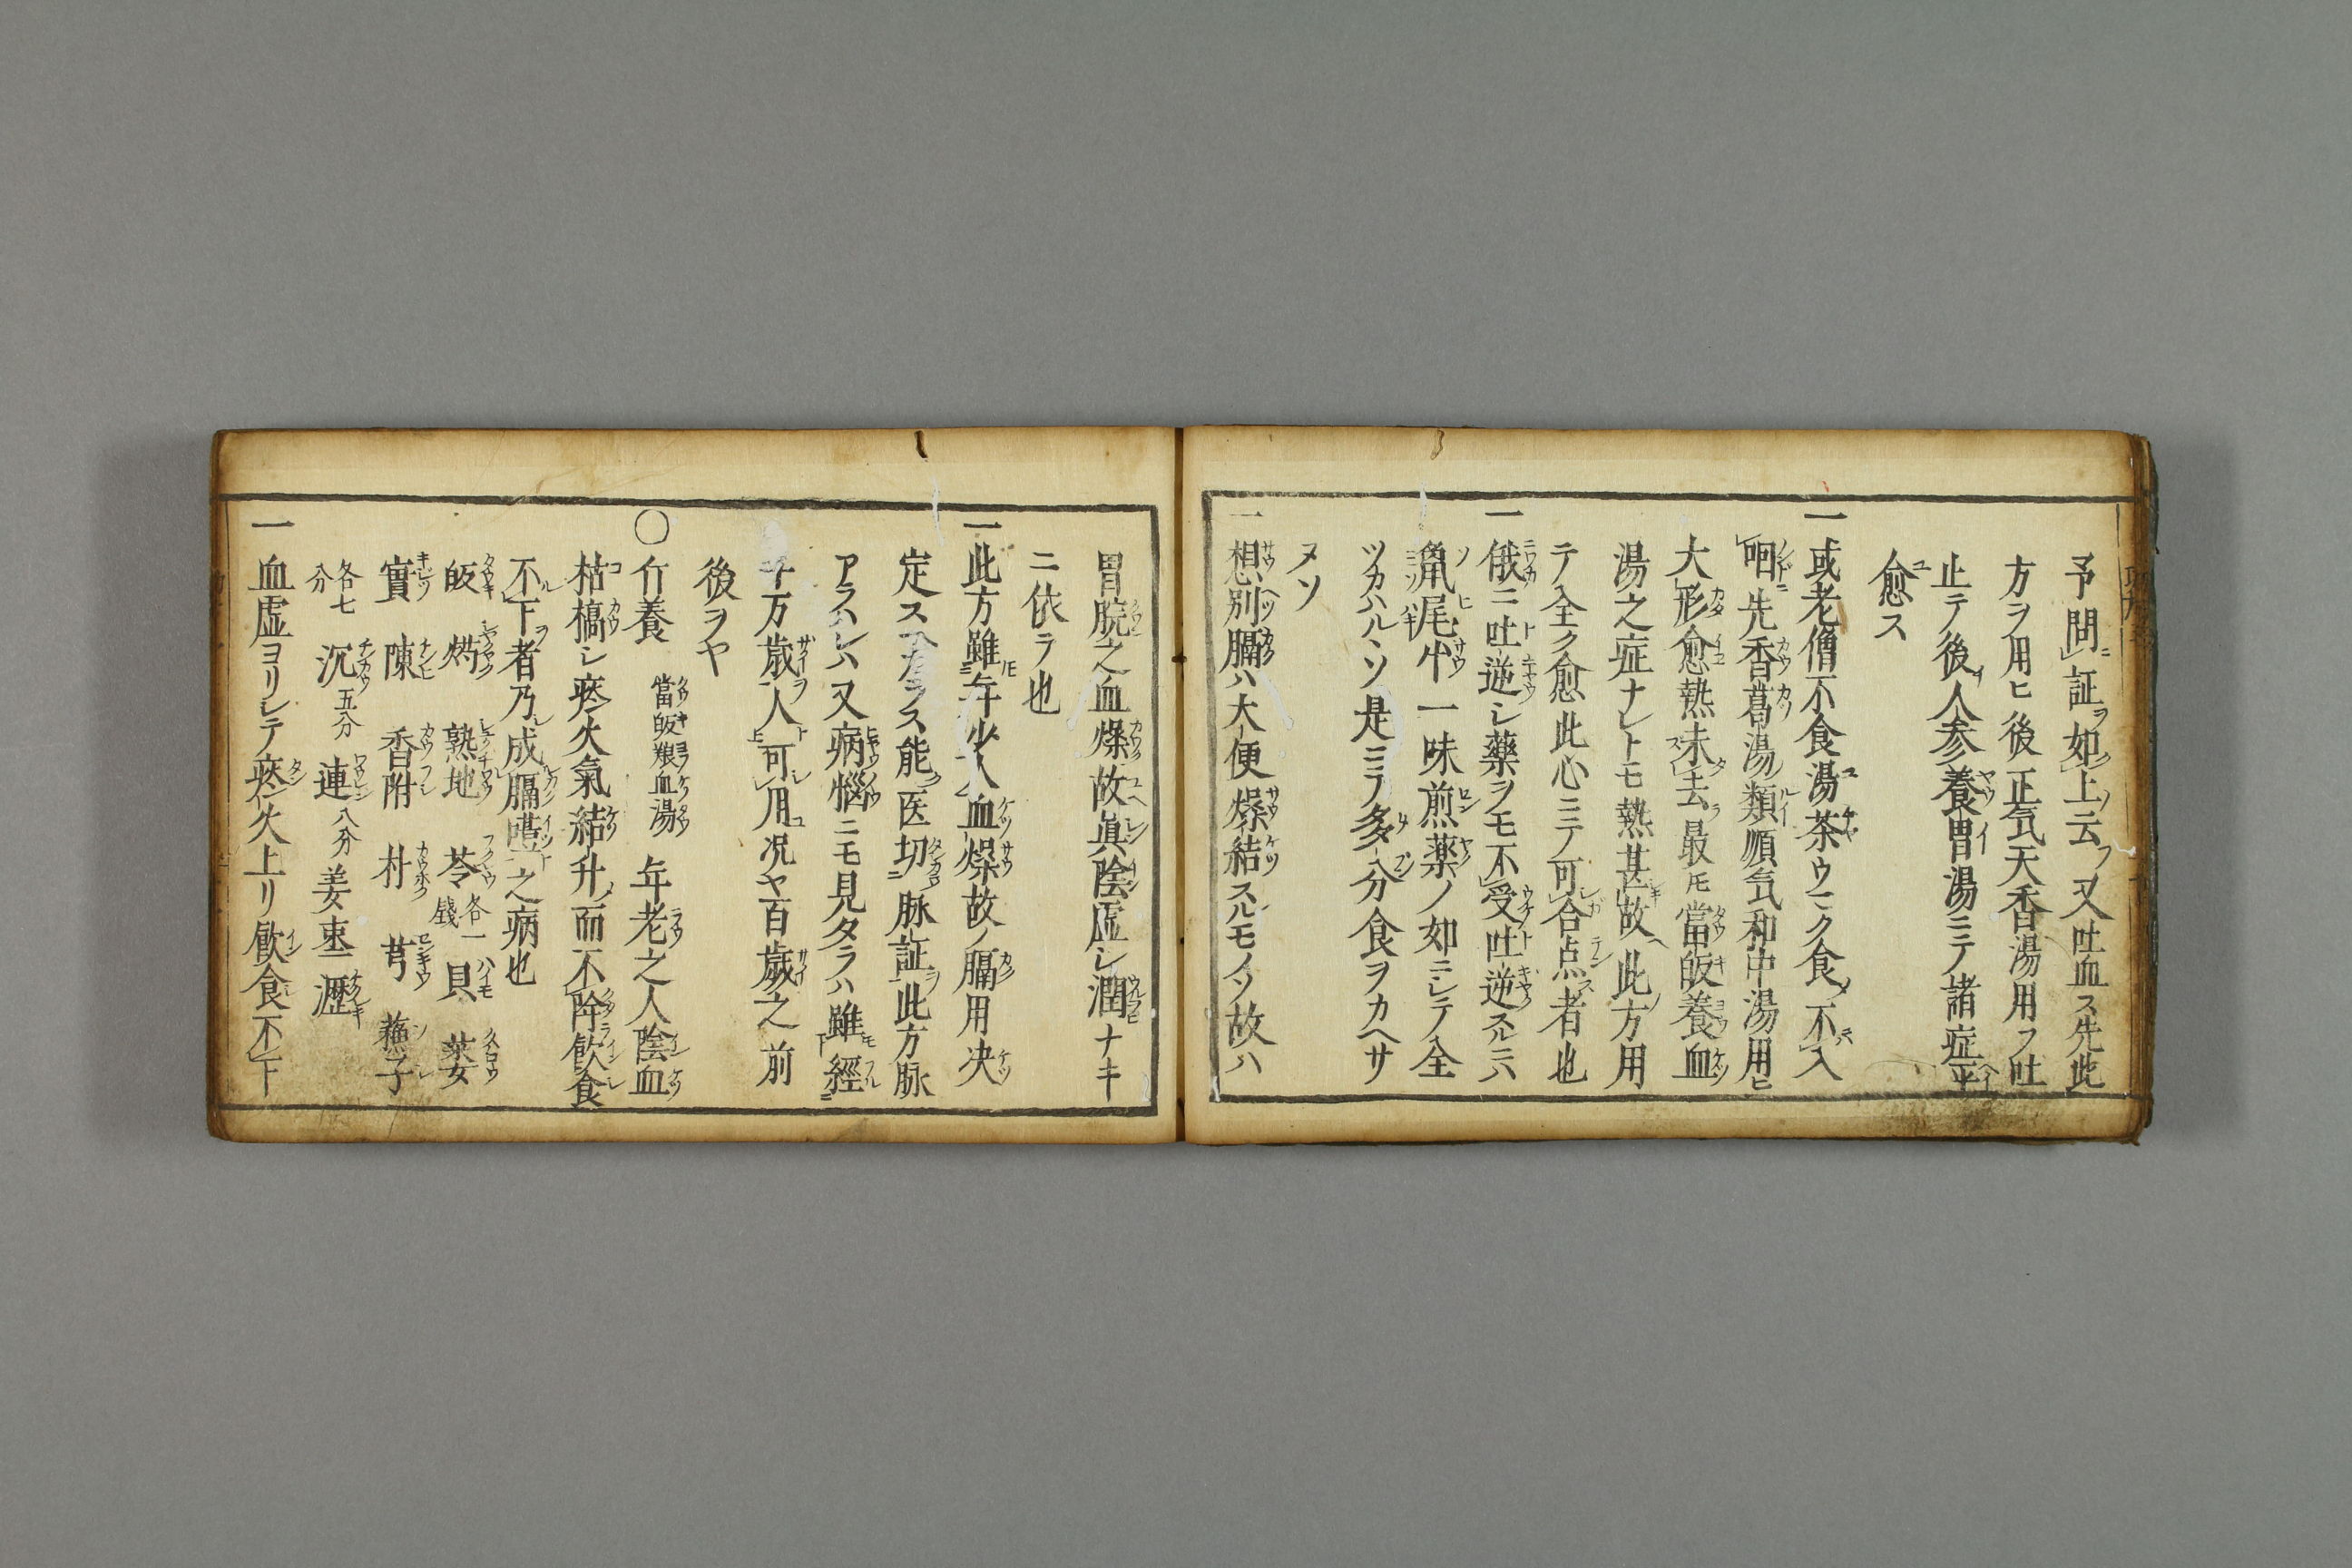 予問証ヲ如上ノ云フ又吐血ス先此
方ヲ用ヒ後正気天香湯用フ吐
止テ後人参養胃湯ニテ諸症平
愈ス
一或老僧不食湯茶ウニク食メ不入
咽先香葛湯類順気和中湯用ヒ
大形愈熱未去最𪜈當皈養血
湯之症ナレトモ熱甚故此方用
テ全ク愈此心ミテ可合点者也
一俄ニ吐逆シ藥ヲモ不受吐逆スルニハ
鼠尾 一味煎藥ノ如ニシテ全
ツカハルヽソ是ミテ多分食ヲカヘサ
ヌソ
一想別膈ハ大便燥結スルモノソ故ハ
胃脘之血燥故眞陰虚シ潤ナキ
ニ依ラ也
一此方雖年少人血燥故ノ膈用决
定ス 能医切脉証此方脉
アラハレハ又病惱ニモ見タラハ雖經
千万歳人可用况ヤ百歳之前
後ヲヤ
○竹養 當皈艱血湯 年老之人陰血
枯槁シ痰火氣結升而不降飲食
不下者乃成膈噎之病也
皈 芍 熟地 苓各一錢 貝 蔞
實 陳 香附 朴 芎 蘓子
各七分 沉五分 連八分 姜 棗 瀝
一血虚ヨリシテ痰火上リ飲食不下